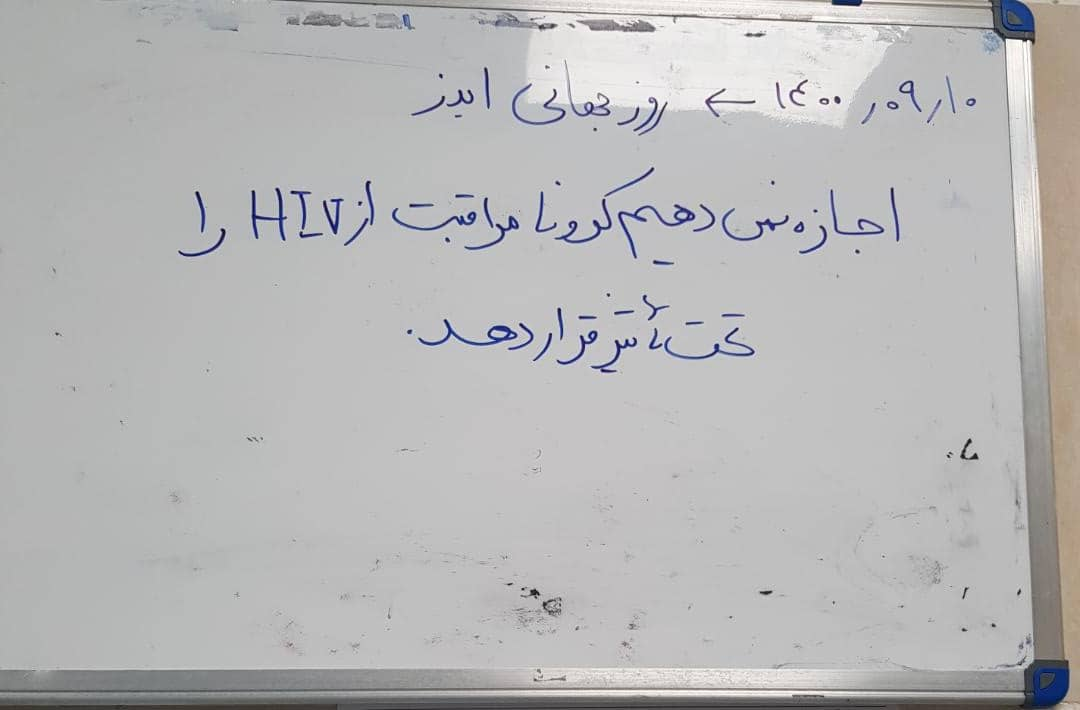 ۱۴۰۰٫۰۹٫۱۰ ← روز جهانی ایدز
اجازه نمی دهیم کرونا مراقبت از HIV را
تحت تأثیر قرار دهد.